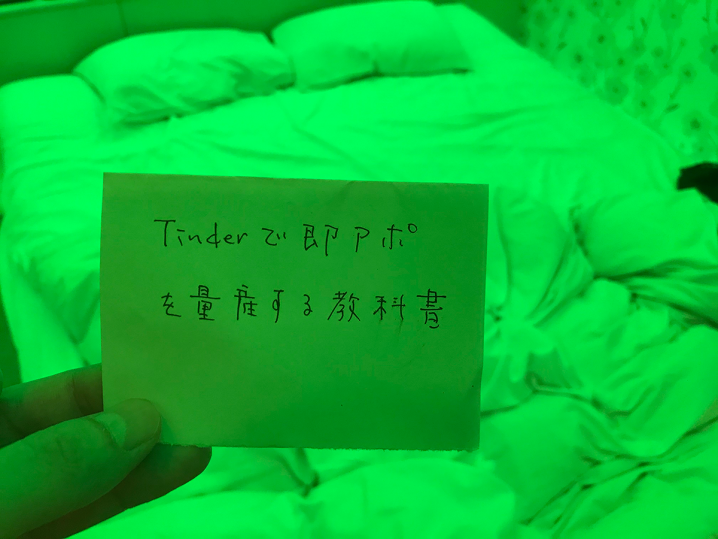 Tinderで即アポ
を量産する教科書